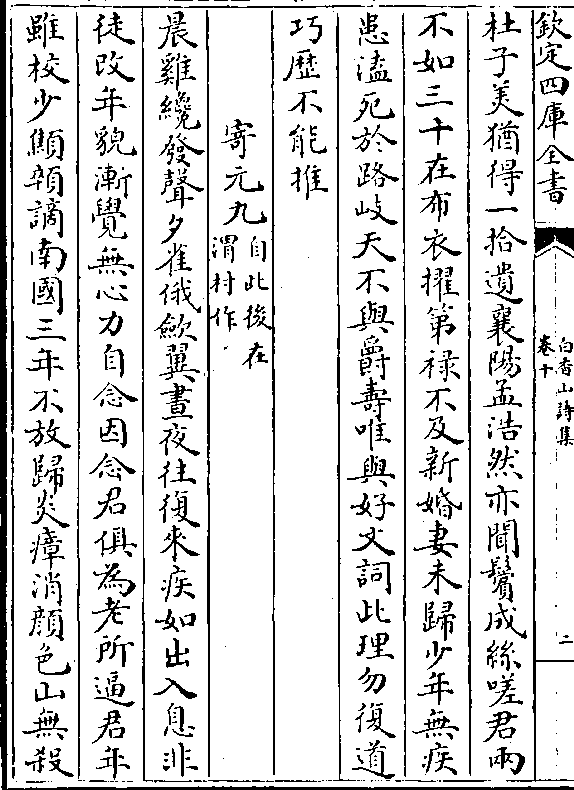 欽定四庫全書
白香山詩集
卷十
二
杜子美猶得一拾遺襄陽孟浩然亦聞鬢成絲嗟君兩
不如三十在布衣擢第禄不及新婚妻未歸少年無疾
患溘死於路岐天不與爵壽唯與好文詞此理勿復道
巧歴不能推
寄元九自此後在
渭村作
晨雞纔發聲夕雀俄歛翼晝夜往復來疾如出入息非
徒改年貌漸覺無心力自念因念君俱為老所逼君年
雖校少顦顇謫南國三年不放歸炎瘴消顔色山無殺